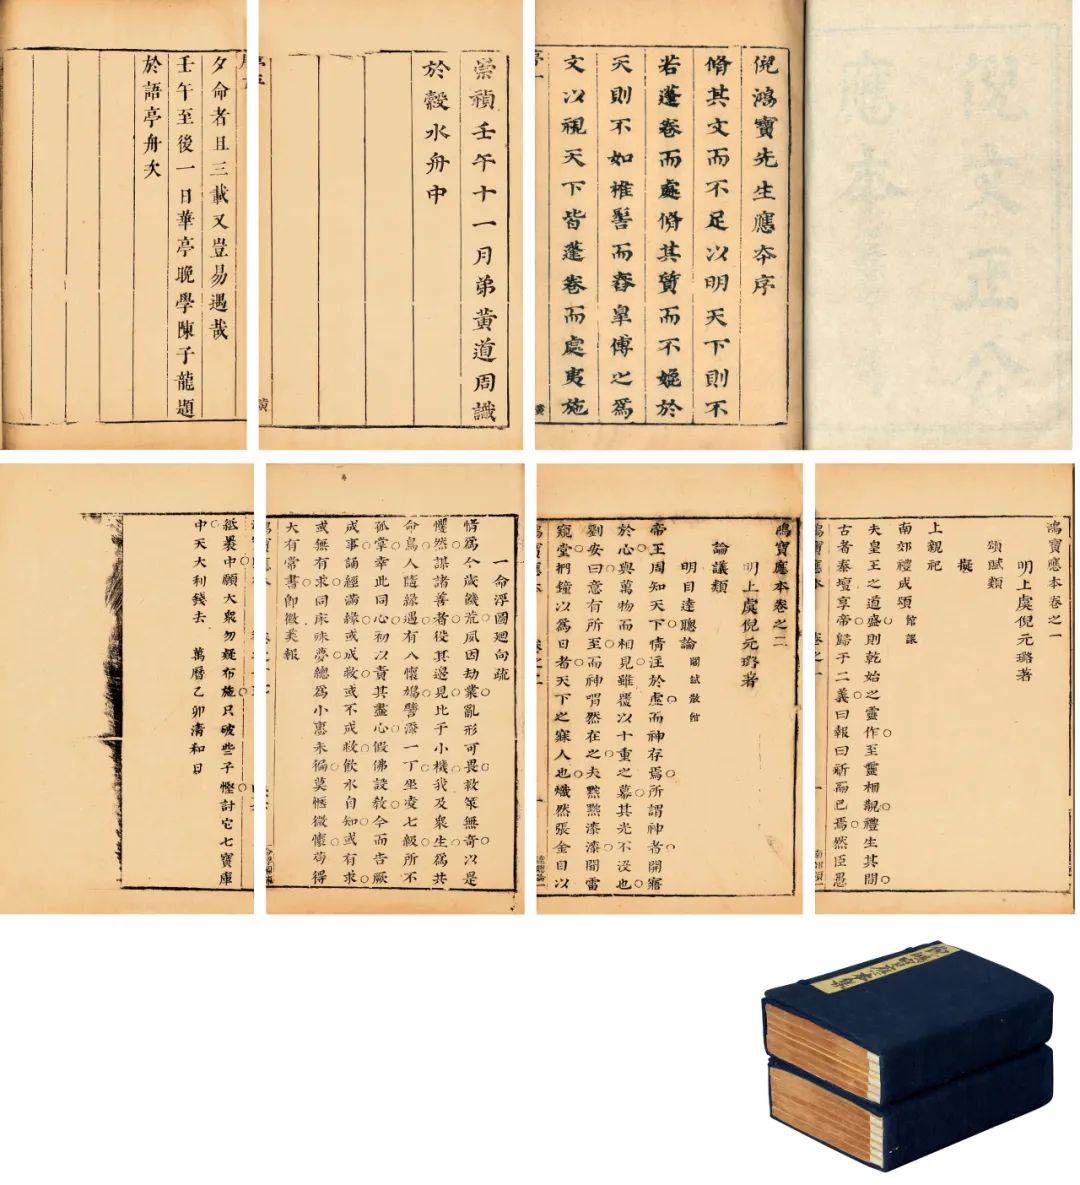 倪鴻寶先生應本序
脩其文而不足以明天下則不
若蓬卷而處脩其質而不娩於
天則不如椎髻而舂臯傅之爲
文以視天下皆蓬卷而處夷施
序一
崇禎壬午十一月弟黃道周識
於縠水舟中
夕命者且三載又豈易遇哉
壬午至後一日華亭晚學陳子龍題
於語亭舟次
鴻寶應本卷之一
明上虞倪元璐著
頌賦類
擬
上親祀
南郊禮成頌 館課
夫皇王之道盛則乾始之靈作至靈相覯禮生其間
古者泰壇享帝歸于二義曰報曰祈而已焉然臣愚
鴻寶應本 卷之一
鴻寶應本卷之二
明上虞倪元璐著
論議類
明目達聰論 閣試散館
帝王周知天下情注於虛而神存焉所謂神者開寤
於心與萬物而相見雖覆以十重之幕其光不沒也
劉安曰意有所至而神喟然在之夫黙黙漆漆闇雷
窺堂捫鐘以爲日者天下之寐人也熾然張金目以
鴻寶應本 卷之二
一命浮圖廻向疏
情爲今歲饑荒夙因劫業亂形可畏救策無奇以是
懼然謀諸善者從其邊見比于小機我及衆生爲共
命鳥人隨緣遇有人懷媿譬添一丁坐凌七級所不
孤掌幸此同心初以責其盡心假佛設敎今而告厥
成事誦經滿緣或成救或不成救飲水自知或有求
或無有求同床殊夢總爲小惠未徧莫慳微懷苟得
大有常書卽徵美報
紙裘中願大衆勿疑布施只破些子慳討它七寶庫
中天大利錢去 萬曆乙卯淸和日
倪鴻寶應本集